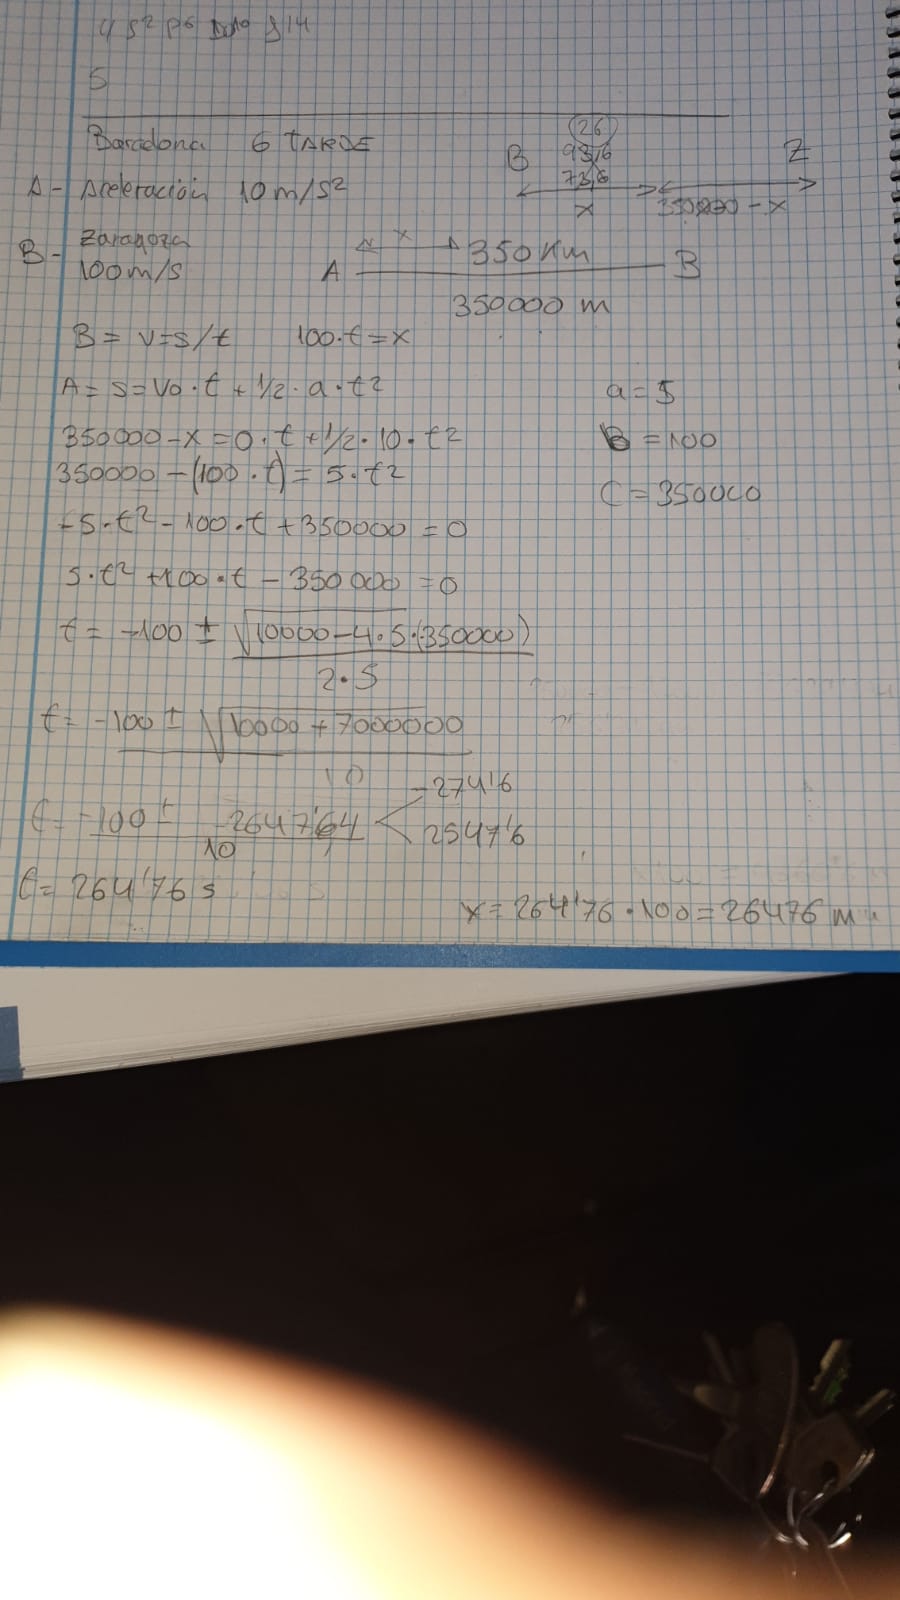 5
Barcelona 6 TARDE
A- Aceleración 10 m/s²
B- Zaragoza
100 m/s
(26)
93,6
73,6
B Z
x 350000 - x
x
350 Km
A B
350000 m
B = v=s/t 100·t=x
A= s=Vo·t+1/2·a·t² a=5
350000-x=0·t+1/2·10·t² B=100
350000-(100·t)=5·t² C=350000
-5·t²-100·t+350000=0
5·t²+100·t-350000=0
t= -100 ± √10000-4·5·(350000)
2·5
t= -100 ± √10000+7000000
10
t= -100 ± 2647'64 -274'6
10 2547'6
t= 264'76 s
x=264'76·100=26476 m